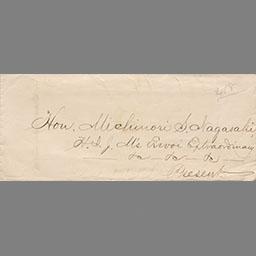 Hon. Michinori S. Nagasaki,
H. I. J. M's Envoi Extraordinary
&c &c &c
Present